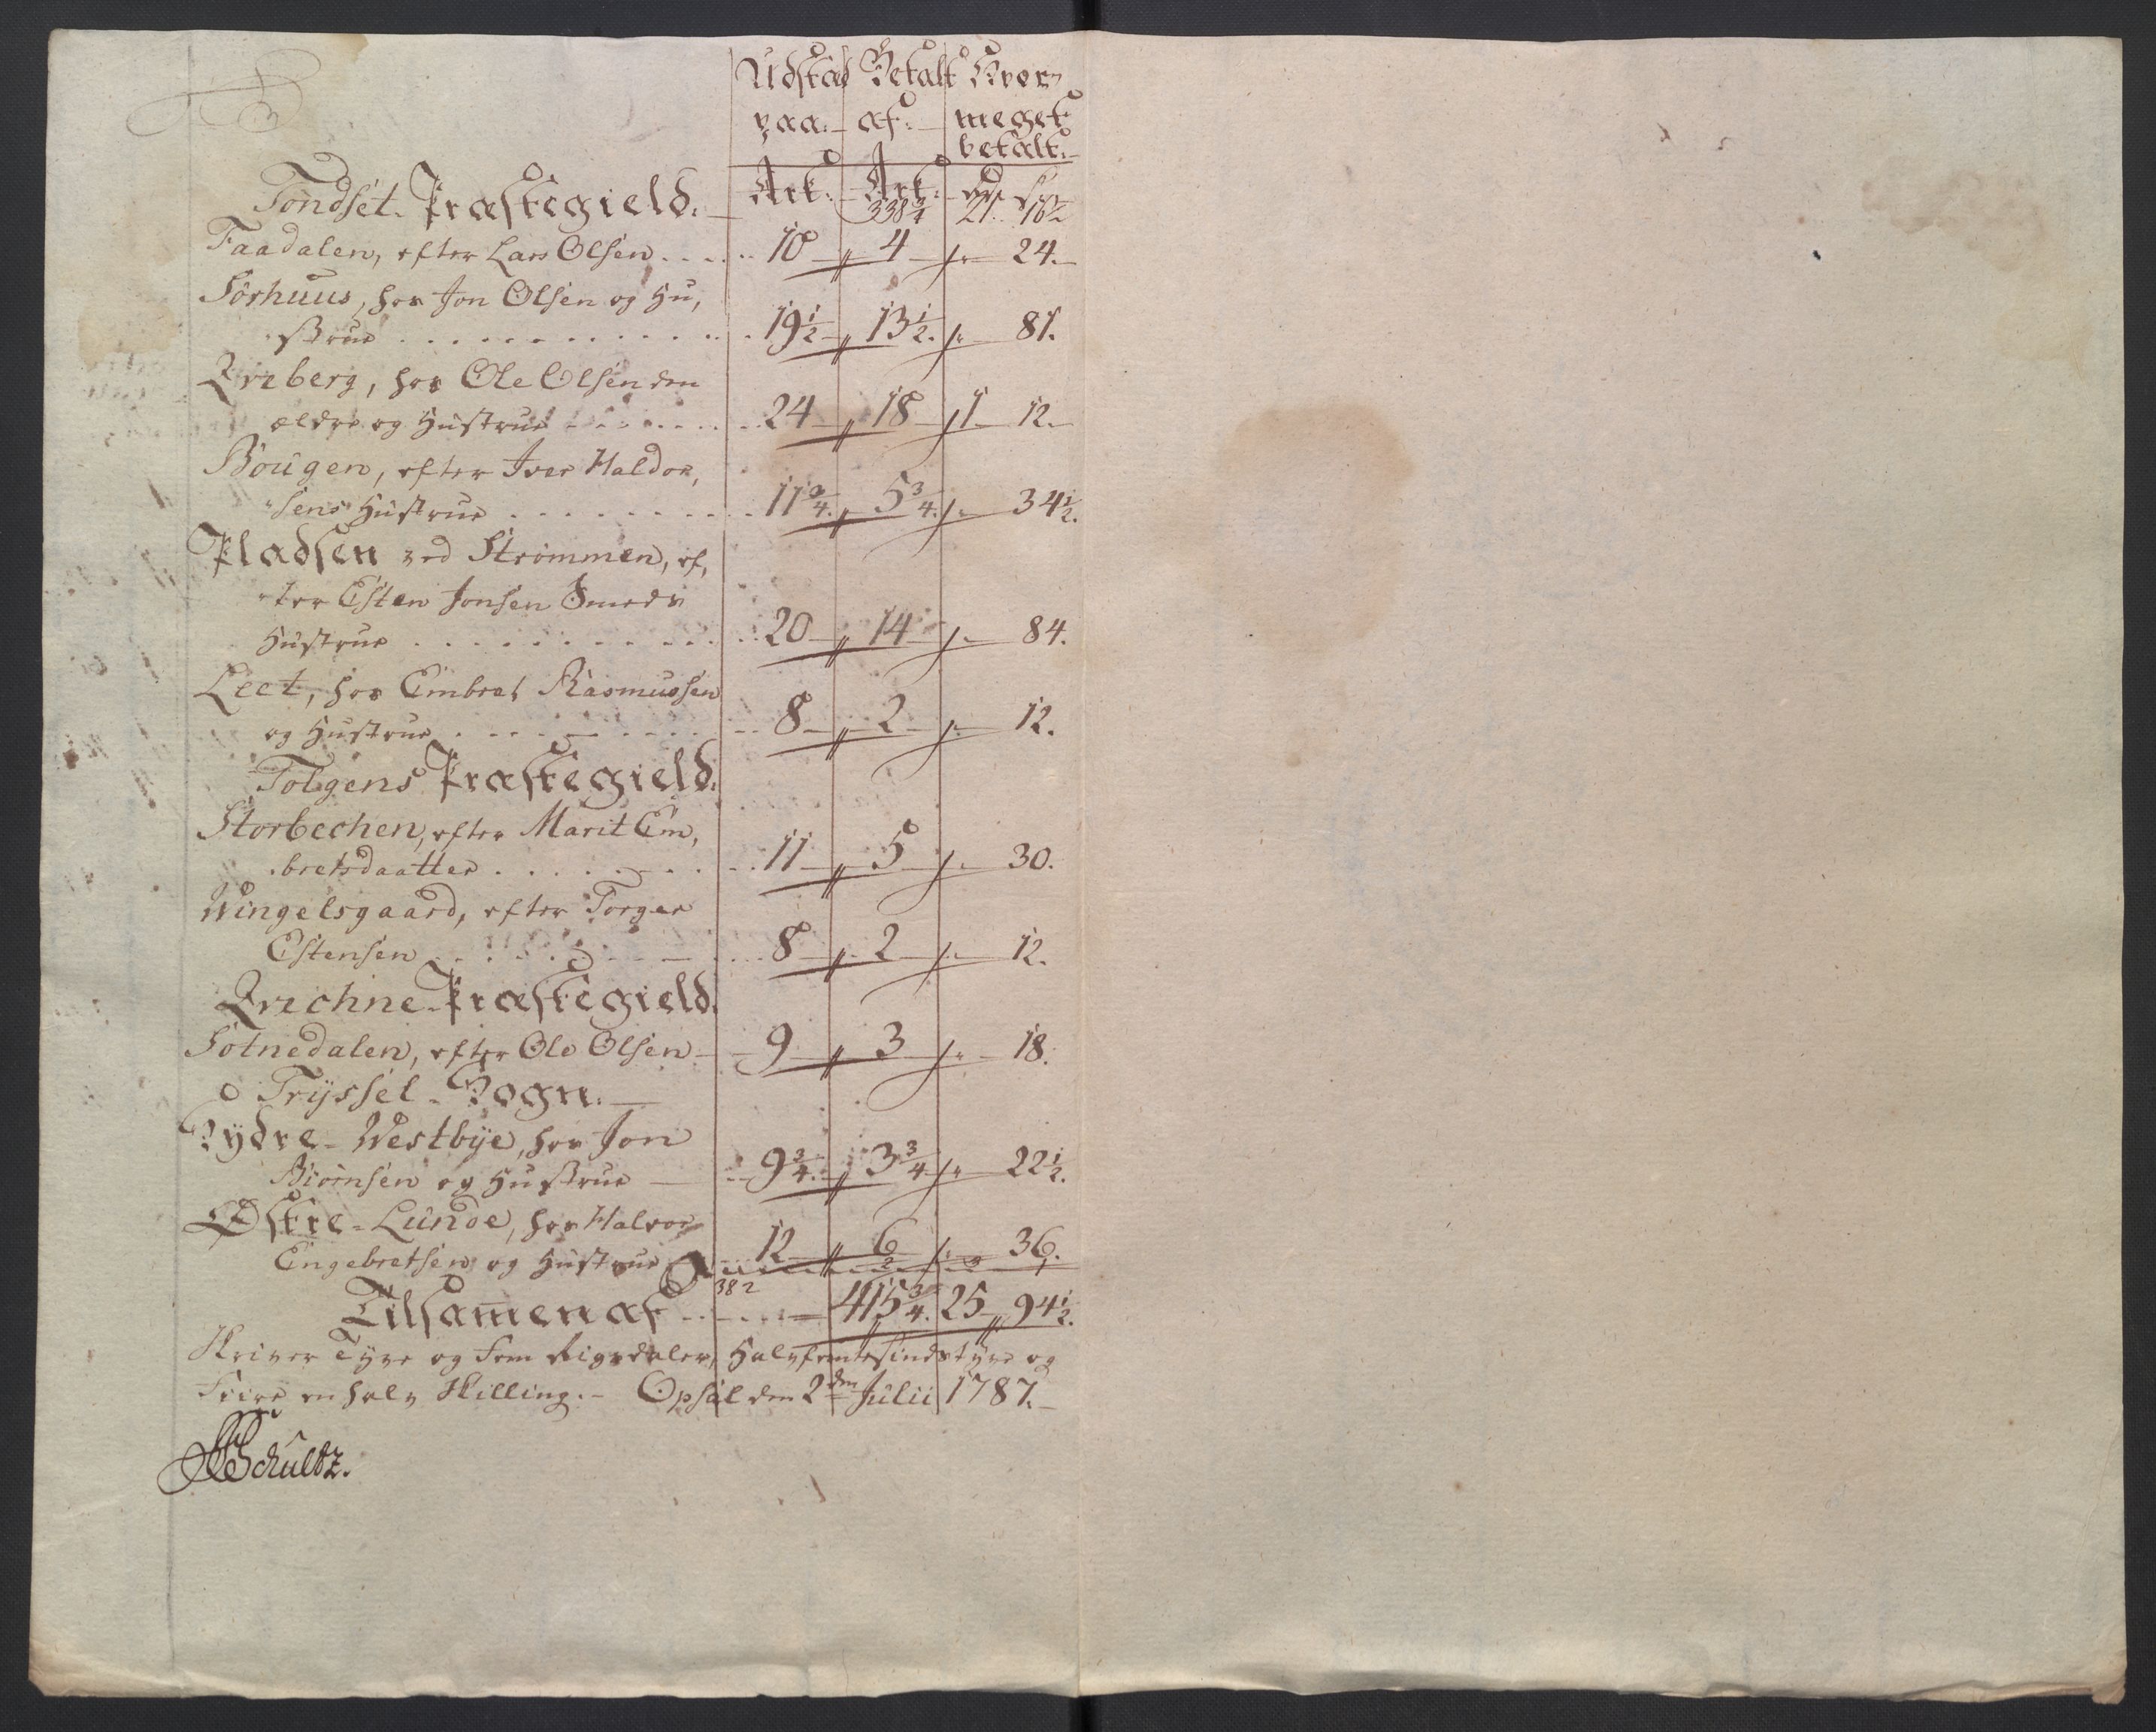 Udstæd Betalt Hvor
paa. af. meget
betalt.
Tøndset Præstegield. Ark. Ark. Rdr. s
338 3/4 21. 16 1/2
Faadalen, efter Lars Olsen . . . . . 10 4 " 24.
Sørhuus, hos Jon Olsen og Hu,
strue . . . . . . . . . . . 19 1/2 13 1/2. " 81.
Qveberg, hos Ole Olsen den
ældre og Hustrue . . . . . . . 24 18 1 12.
Bougen, efter Iver Haldor,
sens Hustrue . . . . . . . . . 11 3/4. 5 3/4. " 34 1/2.
Pladsen ved Strømmen, ef,
ter Esten Jonsen Smeds
Hustrue . . . . . . . . . . . 20 14 " 84.
Leet, hos Embret Rasmussen
og Hustrue . . . . . . . . . 8 2 " 12.
Tolgens Præstegield.
Storbechen, efter Marit Em,
bretsdaatter . . . . . . . . 11 5 " 30.
Wingelsgaard, efter Torger
Estensen . . . . . . . . . 8 2 " 12.
Qvichne Præstegield.
Sotnedalen, efter Ole Olsen 9 3 " 18.
Tryssel Sogn.
Nydre Westbye, hos Jon
Biørnsen og Hustrue 9 3/4. 3 3/4 " 22 1/2.
Østre Lunde, hos Halvor
Engebretsen og Hustrue . . 12 6 " 36.
382
Tilsamen af . . . . . 415 3/4. 25 94 1/2.
Skriver Tyve og Fem Rigsdaler, Halvfemtesindstyve og
Fiire en halv Skilling. Opsal den 2den Julii 1787.
Schultz.